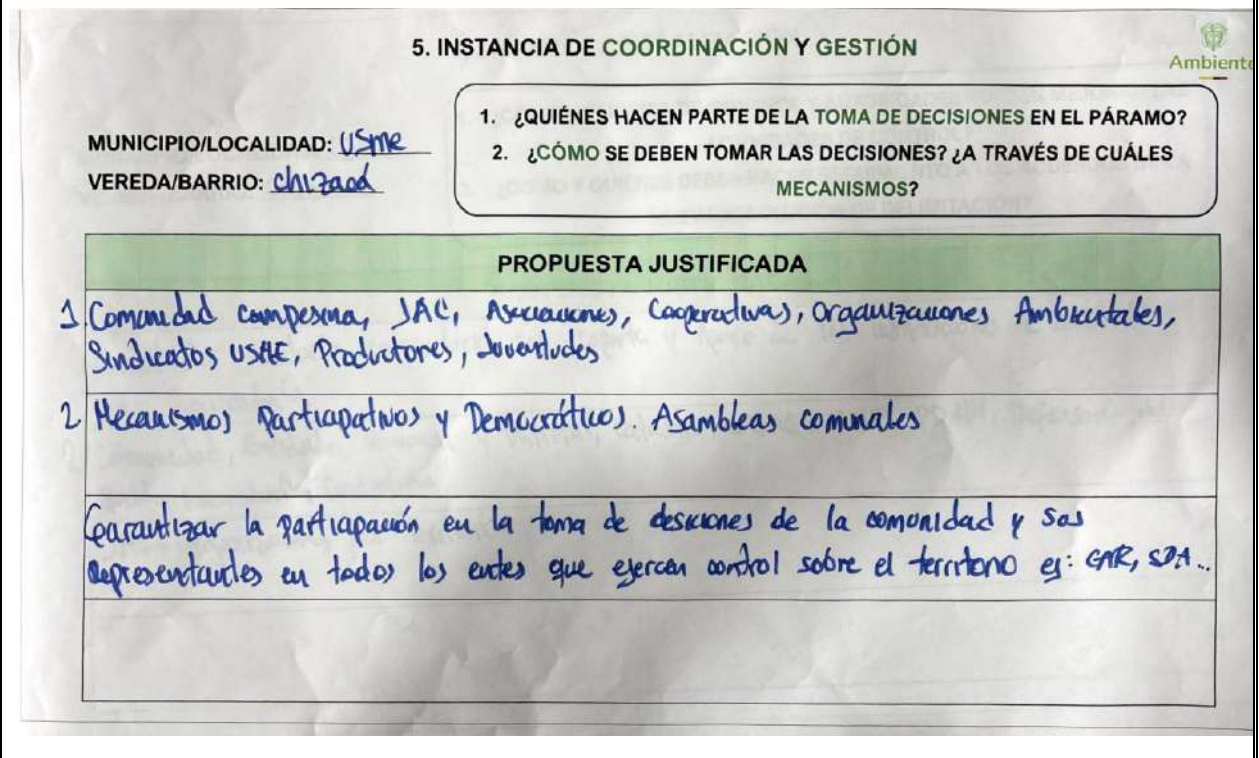 5. INSTANCIA DE COORDINACIÓN Y GESTIÓN
Ambiente
MUNICIPIO/LOCALIDAD: USme
VEREDA/BARRIO: chizacá
1. ¿QUIÉNES HACEN PARTE DE LA TOMA DE DECISIONES EN EL PÁRAMO?
2. ¿CÓMO SE DEBEN TOMAR LAS DECISIONES? ¿A TRAVÉS DE CUÁLES
MECANISMOS?
PROPUESTA JUSTIFICADA
1 Comunidad campesina, JAC, Asociaciones, Cooperativas, Organizaciones Ambientales,
Sindicatos USME, Productores, Juventudes
2 Mecanismos Participativos y Democráticos. Asambleas comunales
Garantizar la participación en la toma de desiciones de la comunidad y sus
representantes en todos los entes que ejercen control sobre el territorio ej: CAR, SDA...